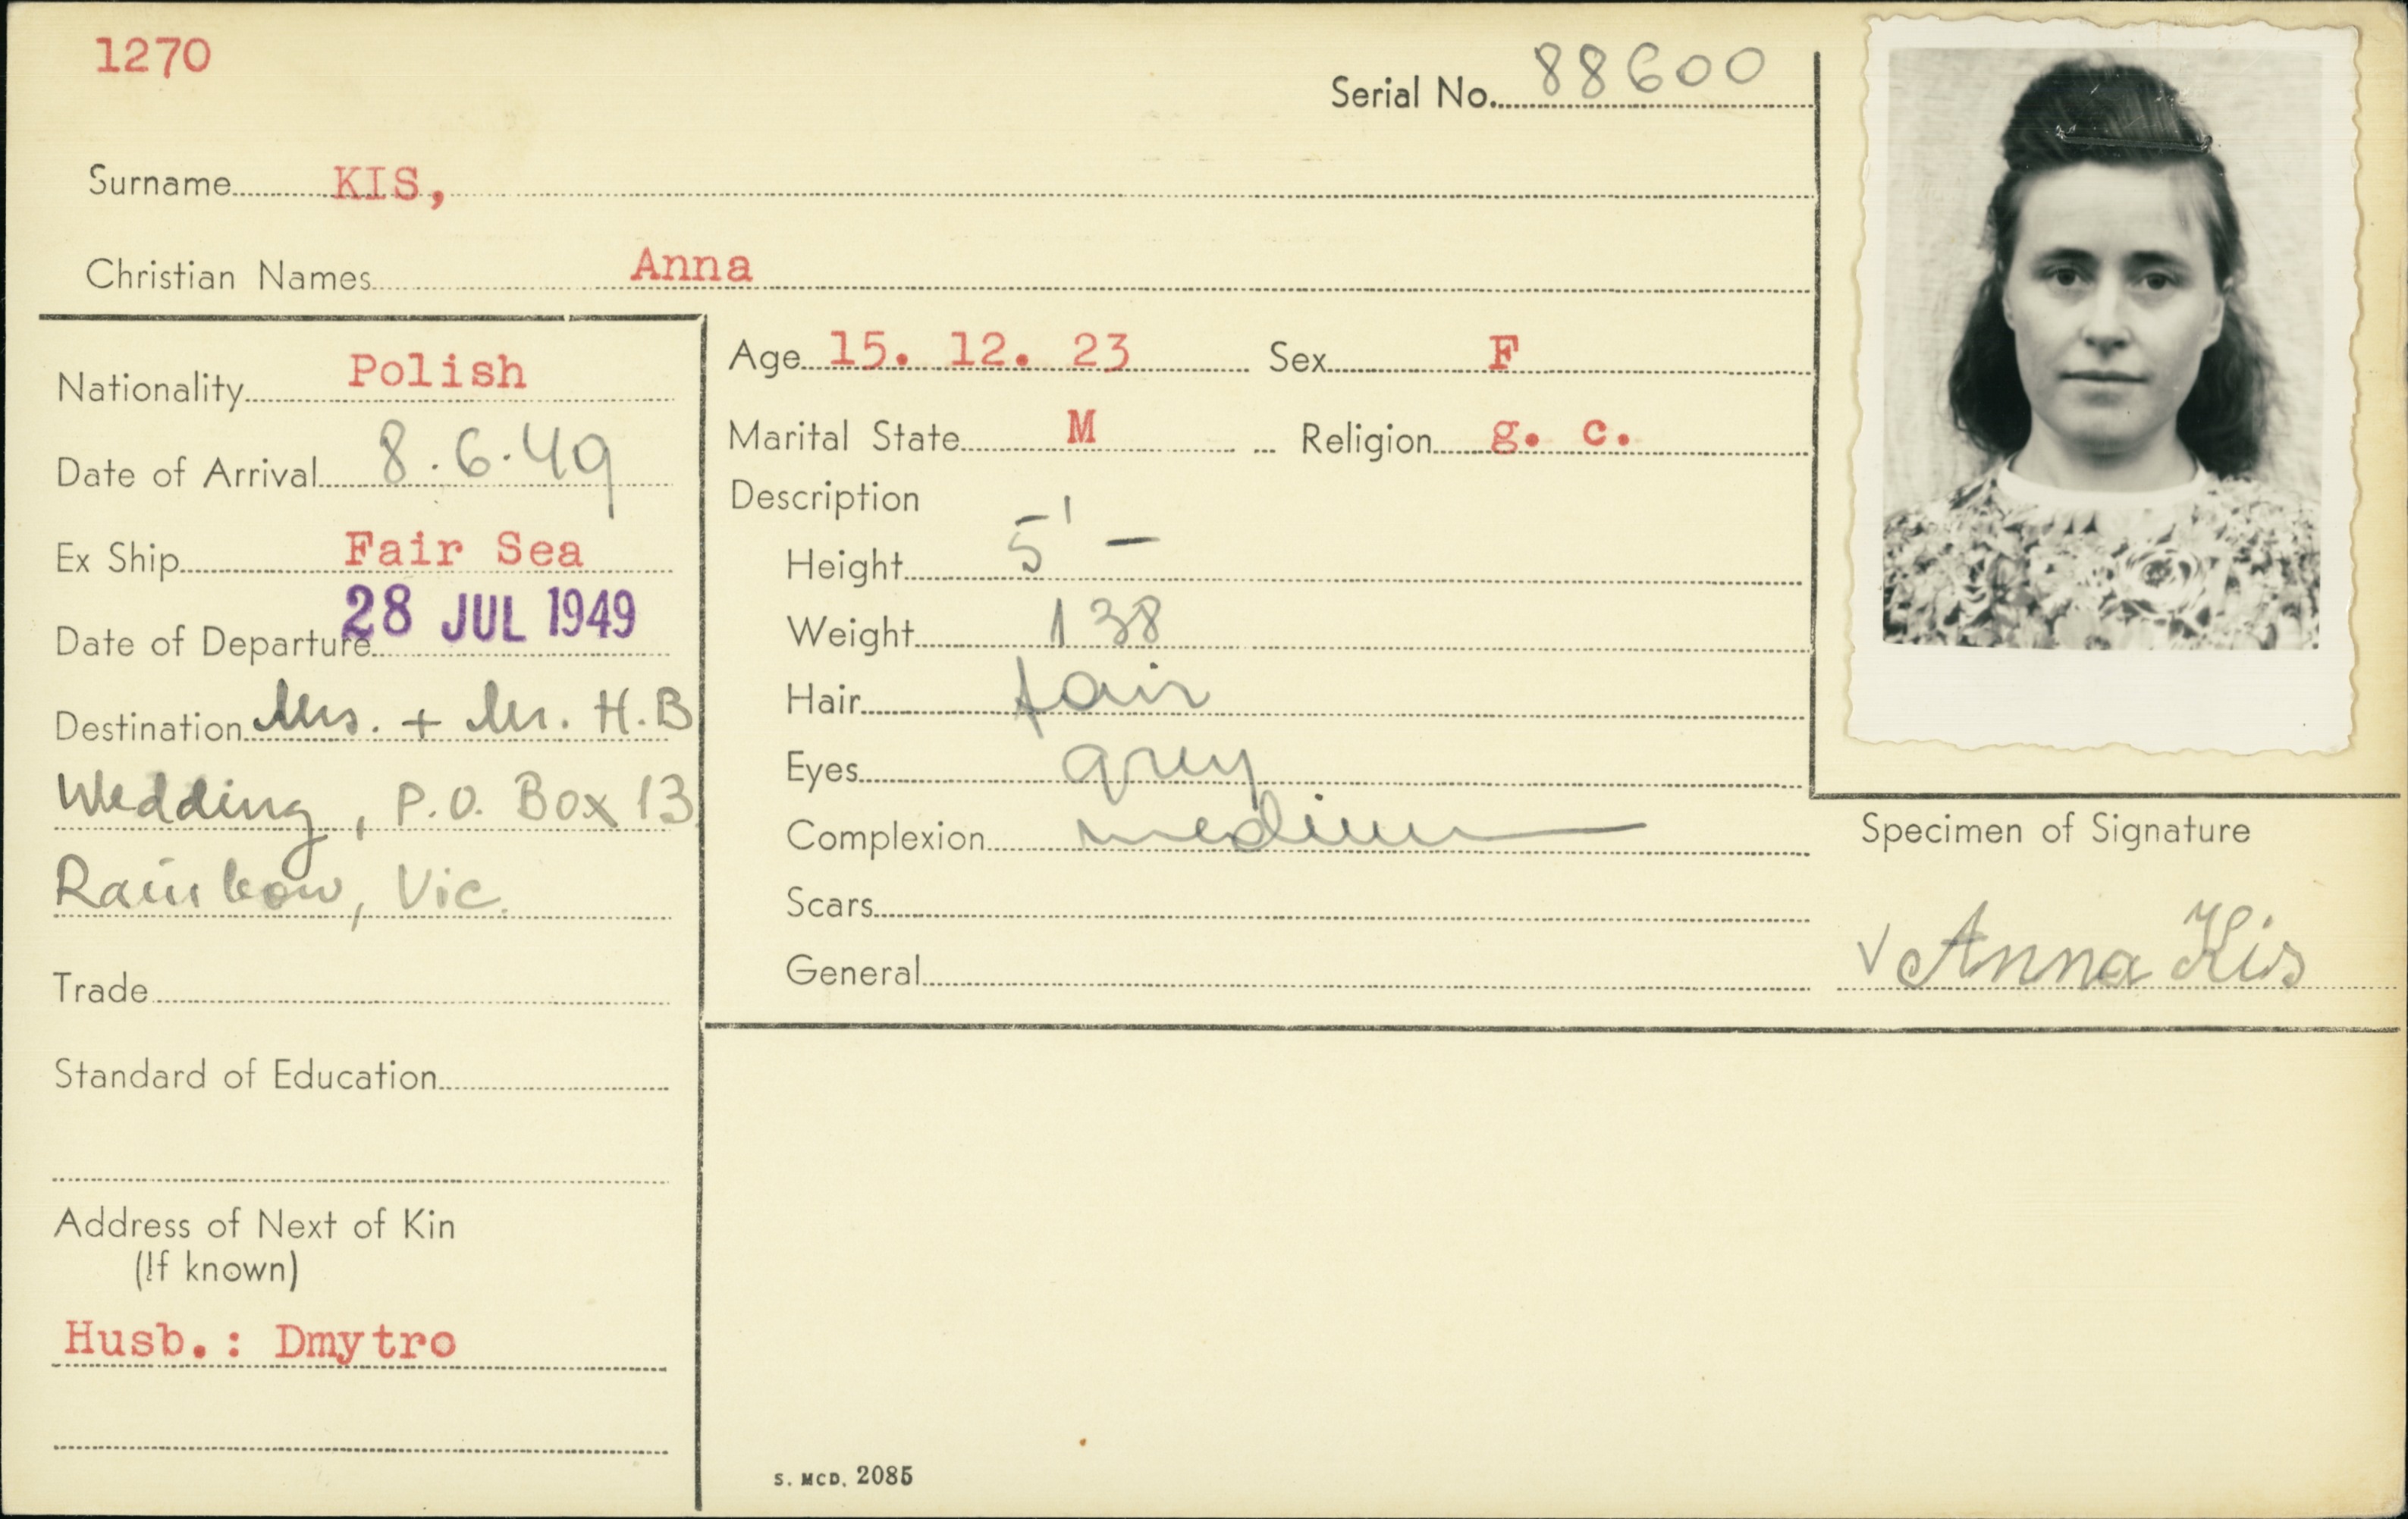 1270
Serial No. 88600
Surname KIS,
Christian Names Anna
Nationality Polish
Date of Arrival 8.6.49
Ex Ship Fair Sea
Date of Departure 28 JUL 1949
Destination Mrs. + Mr. H.B
Wedding, P.O. Box 13
Rainbow, Vic.
Trade
Standard of Education
Address of Next of Kin
(If known)
Husb.: Dmytro
Age 15. 12. 23 Sex F
Marital State M Religion g. c.
Description
Height 5' -
Weight 138
Hair fair
Eyes grey
Complexion medium
Scars
General
Specimen of Signature
Anna Kis
S. MCD. 2085